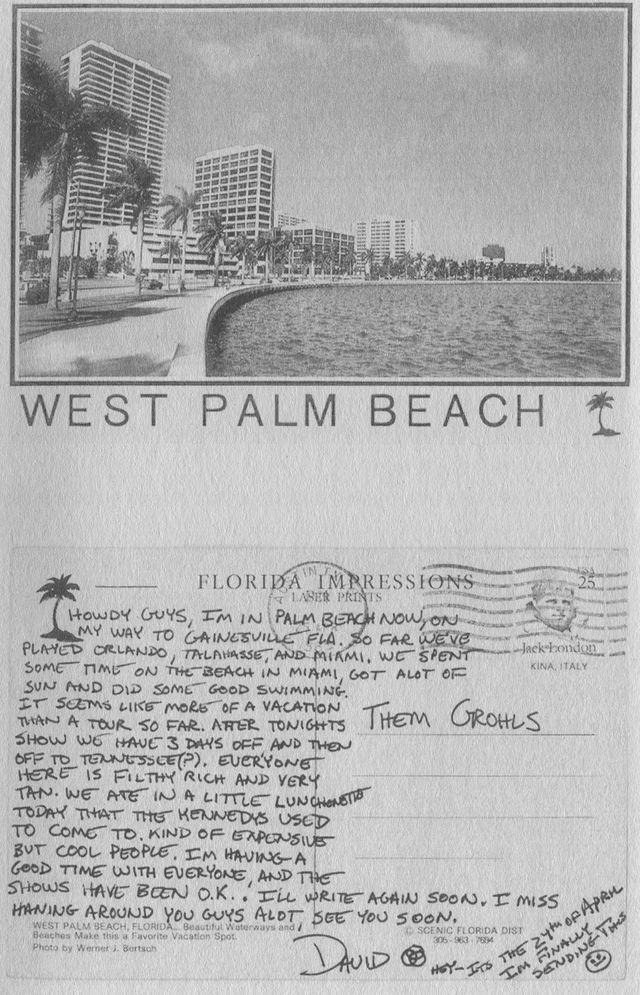 WEST PALM BEACH
FLORIDA IMPRESSIONS
LASER PRINTS
USA
25
Jack London
KINA, ITALY
HOWDY GUYS, I'M IN PALM BEACH NOW, ON
MY WAY TO GAINESVILLE FLA. SO FAR WE'VE
PLAYED ORLANDO, TALAHASSE, AND MIAMI. WE SPENT
SOME TIME ON THE BEACH IN MIAMI, GOT ALOT OF
SUN AND DID SOME GOOD SWIMMING.
IT SEEMS LIKE MORE OF A VACATION
THAN A TOUR SO FAR. AFTER TONIGHTS
SHOW WE HAVE 3 DAYS OFF AND THEN
OFF TO TENNESSEE(?). EVERYONE
HERE IS FILTHY RICH AND VERY
TAN. WE ATE IN A LITTLE LUNCHONETTE
TODAY THAT THE KENNEDYS USED
TO COME TO. KIND OF EXPENSIVE
BUT COOL PEOPLE. I'M HAVING A
GOOD TIME WITH EVERYONE, AND THE
SHOWS HAVE BEEN O.K.. I'LL WRITE AGAIN SOON. I MISS
HANING AROUND YOU GUYS ALOT, SEE YOU SOON.
DAVID
THEM GROHLS
WEST PALM BEACH, FLORIDA... Beautiful Waterways and
Beaches Make this a Favorite Vacation Spot.
Photo by Werner J. Bertsch
© SCENIC FLORIDA DIST
305-963-7694
HEY-ITS THE 24TH OF APRIL
I'M FINALLY
SENDING THIS